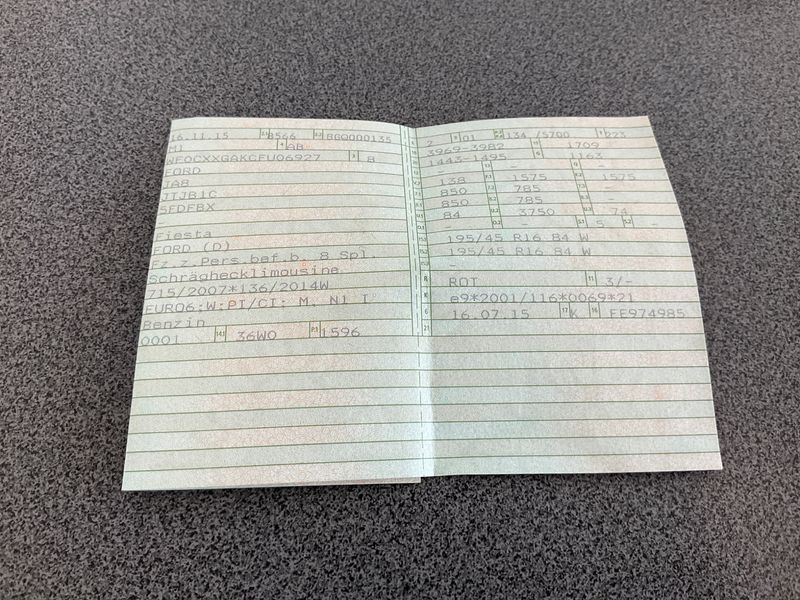 16.11.15 8566 BGO000135
M1 AB
WF0CXXGAKCFU06927 8
FORD
JA8
JTJB1C
5FDFBX
Fiesta
FORD (D)
Fz.z.Pers.bef.b. 8 Spl.
Schräghecklimousine
715/2007*136/2014W
EURO6;W:PI/CI: M, N1 I
Benzin
0001 14.1 36W0 P.1 1596
2 01 134 /5700 223
3969-3982 1709
1443-1495 1163
- - -
138 1575 1575
850 785 -
850 785 -
84 3750 74
- - 5 -
195/45 R16 84 W
195/45 R16 84 W
R ROT 11 3/-
K e9*2001/116*0069*21
6 16.07.15 17 K 16 FE974985
21